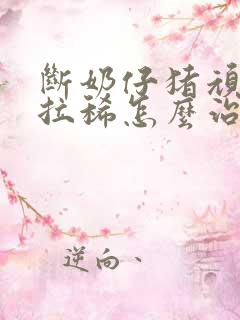 斷奶仔猪頑
拉稀怎麼治
逆向、